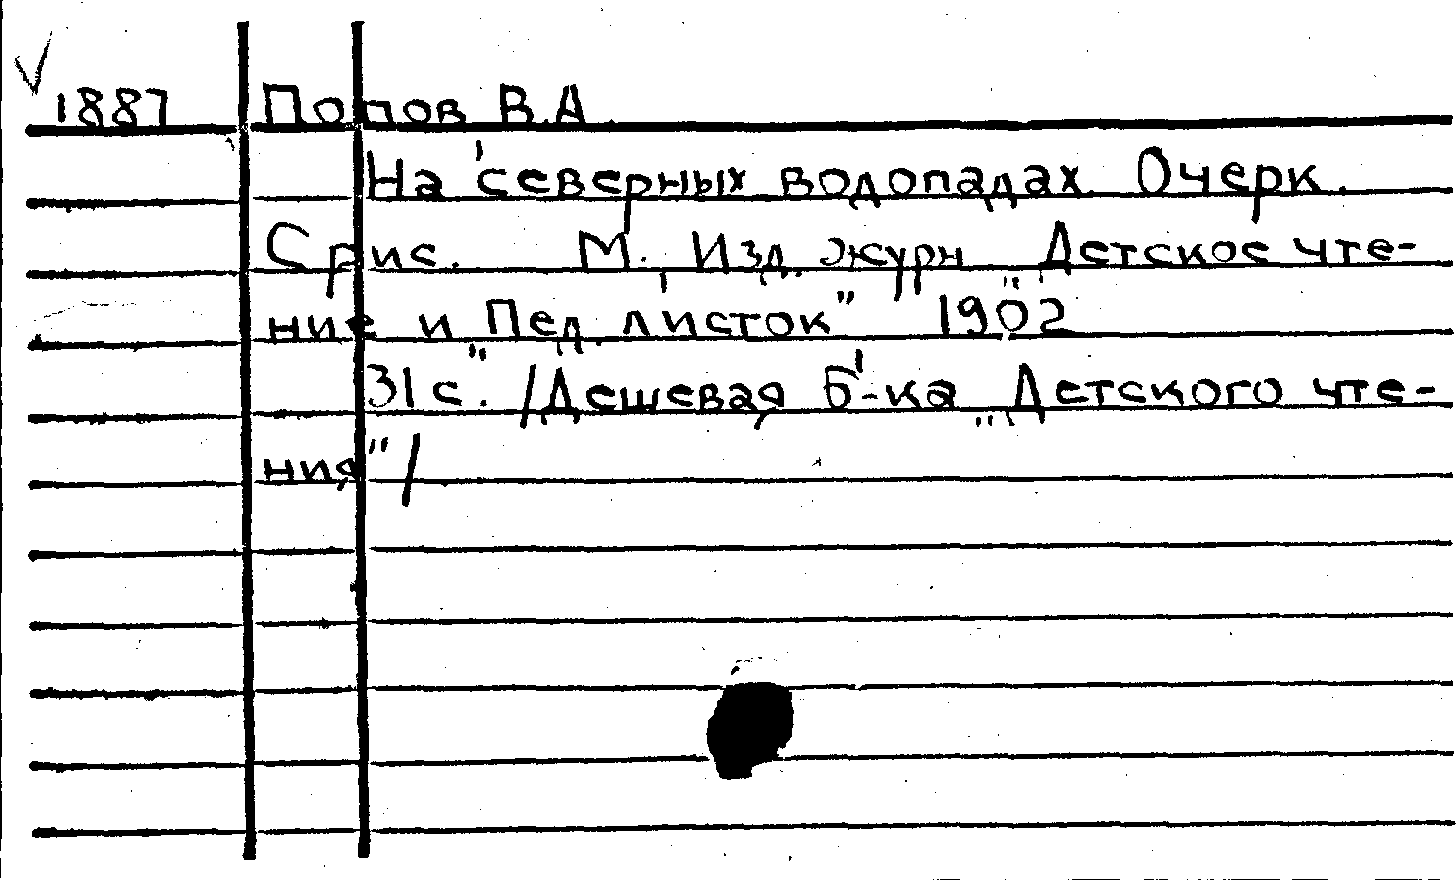 1887 Попов В.А.
На северных водопадах. Очерк.
С рис. М., Изд. журн. "Детское чте-
ние" и "Пед. листок" 1902
31 с. /Дешевая б-ка "Детского чте-
ния"/